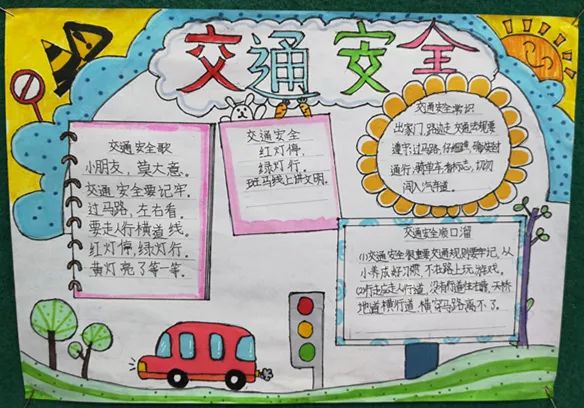 交通安全
交通安全歌
小朋友，莫大意。
交通安全要记牢。
过马路，左右看。
要走人行横道线。
红灯停，绿灯行。
黄灯亮了等一等。
交通安全
红灯停，
绿灯行。
斑马线上讲文明。
交通安全常识
出家门，路边走，交通法规要
遵守，过马路，仔细瞧，确保
通行，骑单车，看标志，切勿
闯入汽车道。
交通安全顺口溜
(1)交通安全很重要，交通规则要牢记，从
小养成好习惯，不在路上玩游戏。
(2)行走应走人行道，没有行道往右靠，天桥
地道横行道，横穿马路离不了。